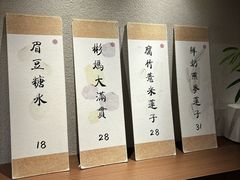 眉豆糖水
18
彬媽大滿貫
28
腐竹薏米蓮子
28
鮮奶燕麥蓮子
31